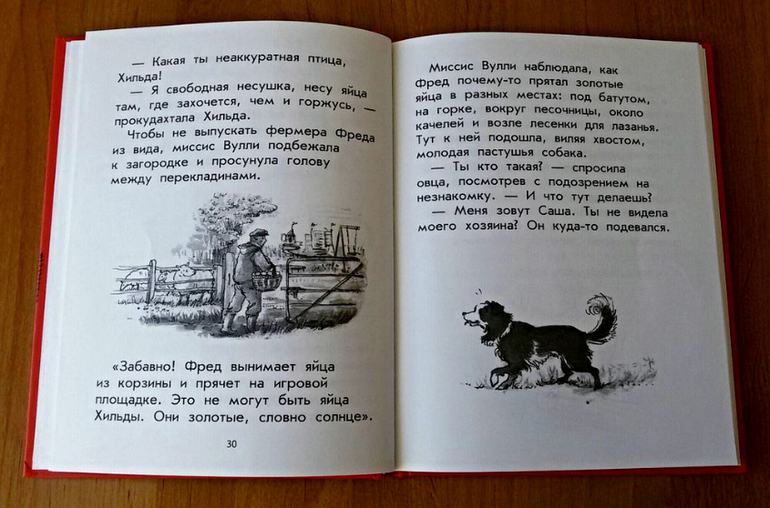 — Какая ты неаккуратная птица,
Хильда!
— Я свободная несушка, несу яйца
там, где захочется, чем и горжусь, —
прокудахтала Хильда.
Чтобы не выпускать фермера Фреда
из вида, миссис Вулли подбежала
к загородке и просунула голову
между перекладинами.
«Забавно! Фред вынимает яйца
из корзины и прячет на игровой
площадке. Это не могут быть яйца
Хильды. Они золотые, словно солнце».
30
Миссис Вулли наблюдала, как
Фред почему-то прятал золотые
яйца в разных местах: под батутом,
на горке, вокруг песочницы, около
качелей и возле лесенки для лазанья.
Тут к ней подошла, виляя хвостом,
молодая пастушья собака.
— Ты кто такая? — спросила
овца, посмотрев с подозрением на
незнакомку. — И что тут делаешь?
— Меня зовут Саша. Ты не видела
моего хозяина? Он куда-то подевался.